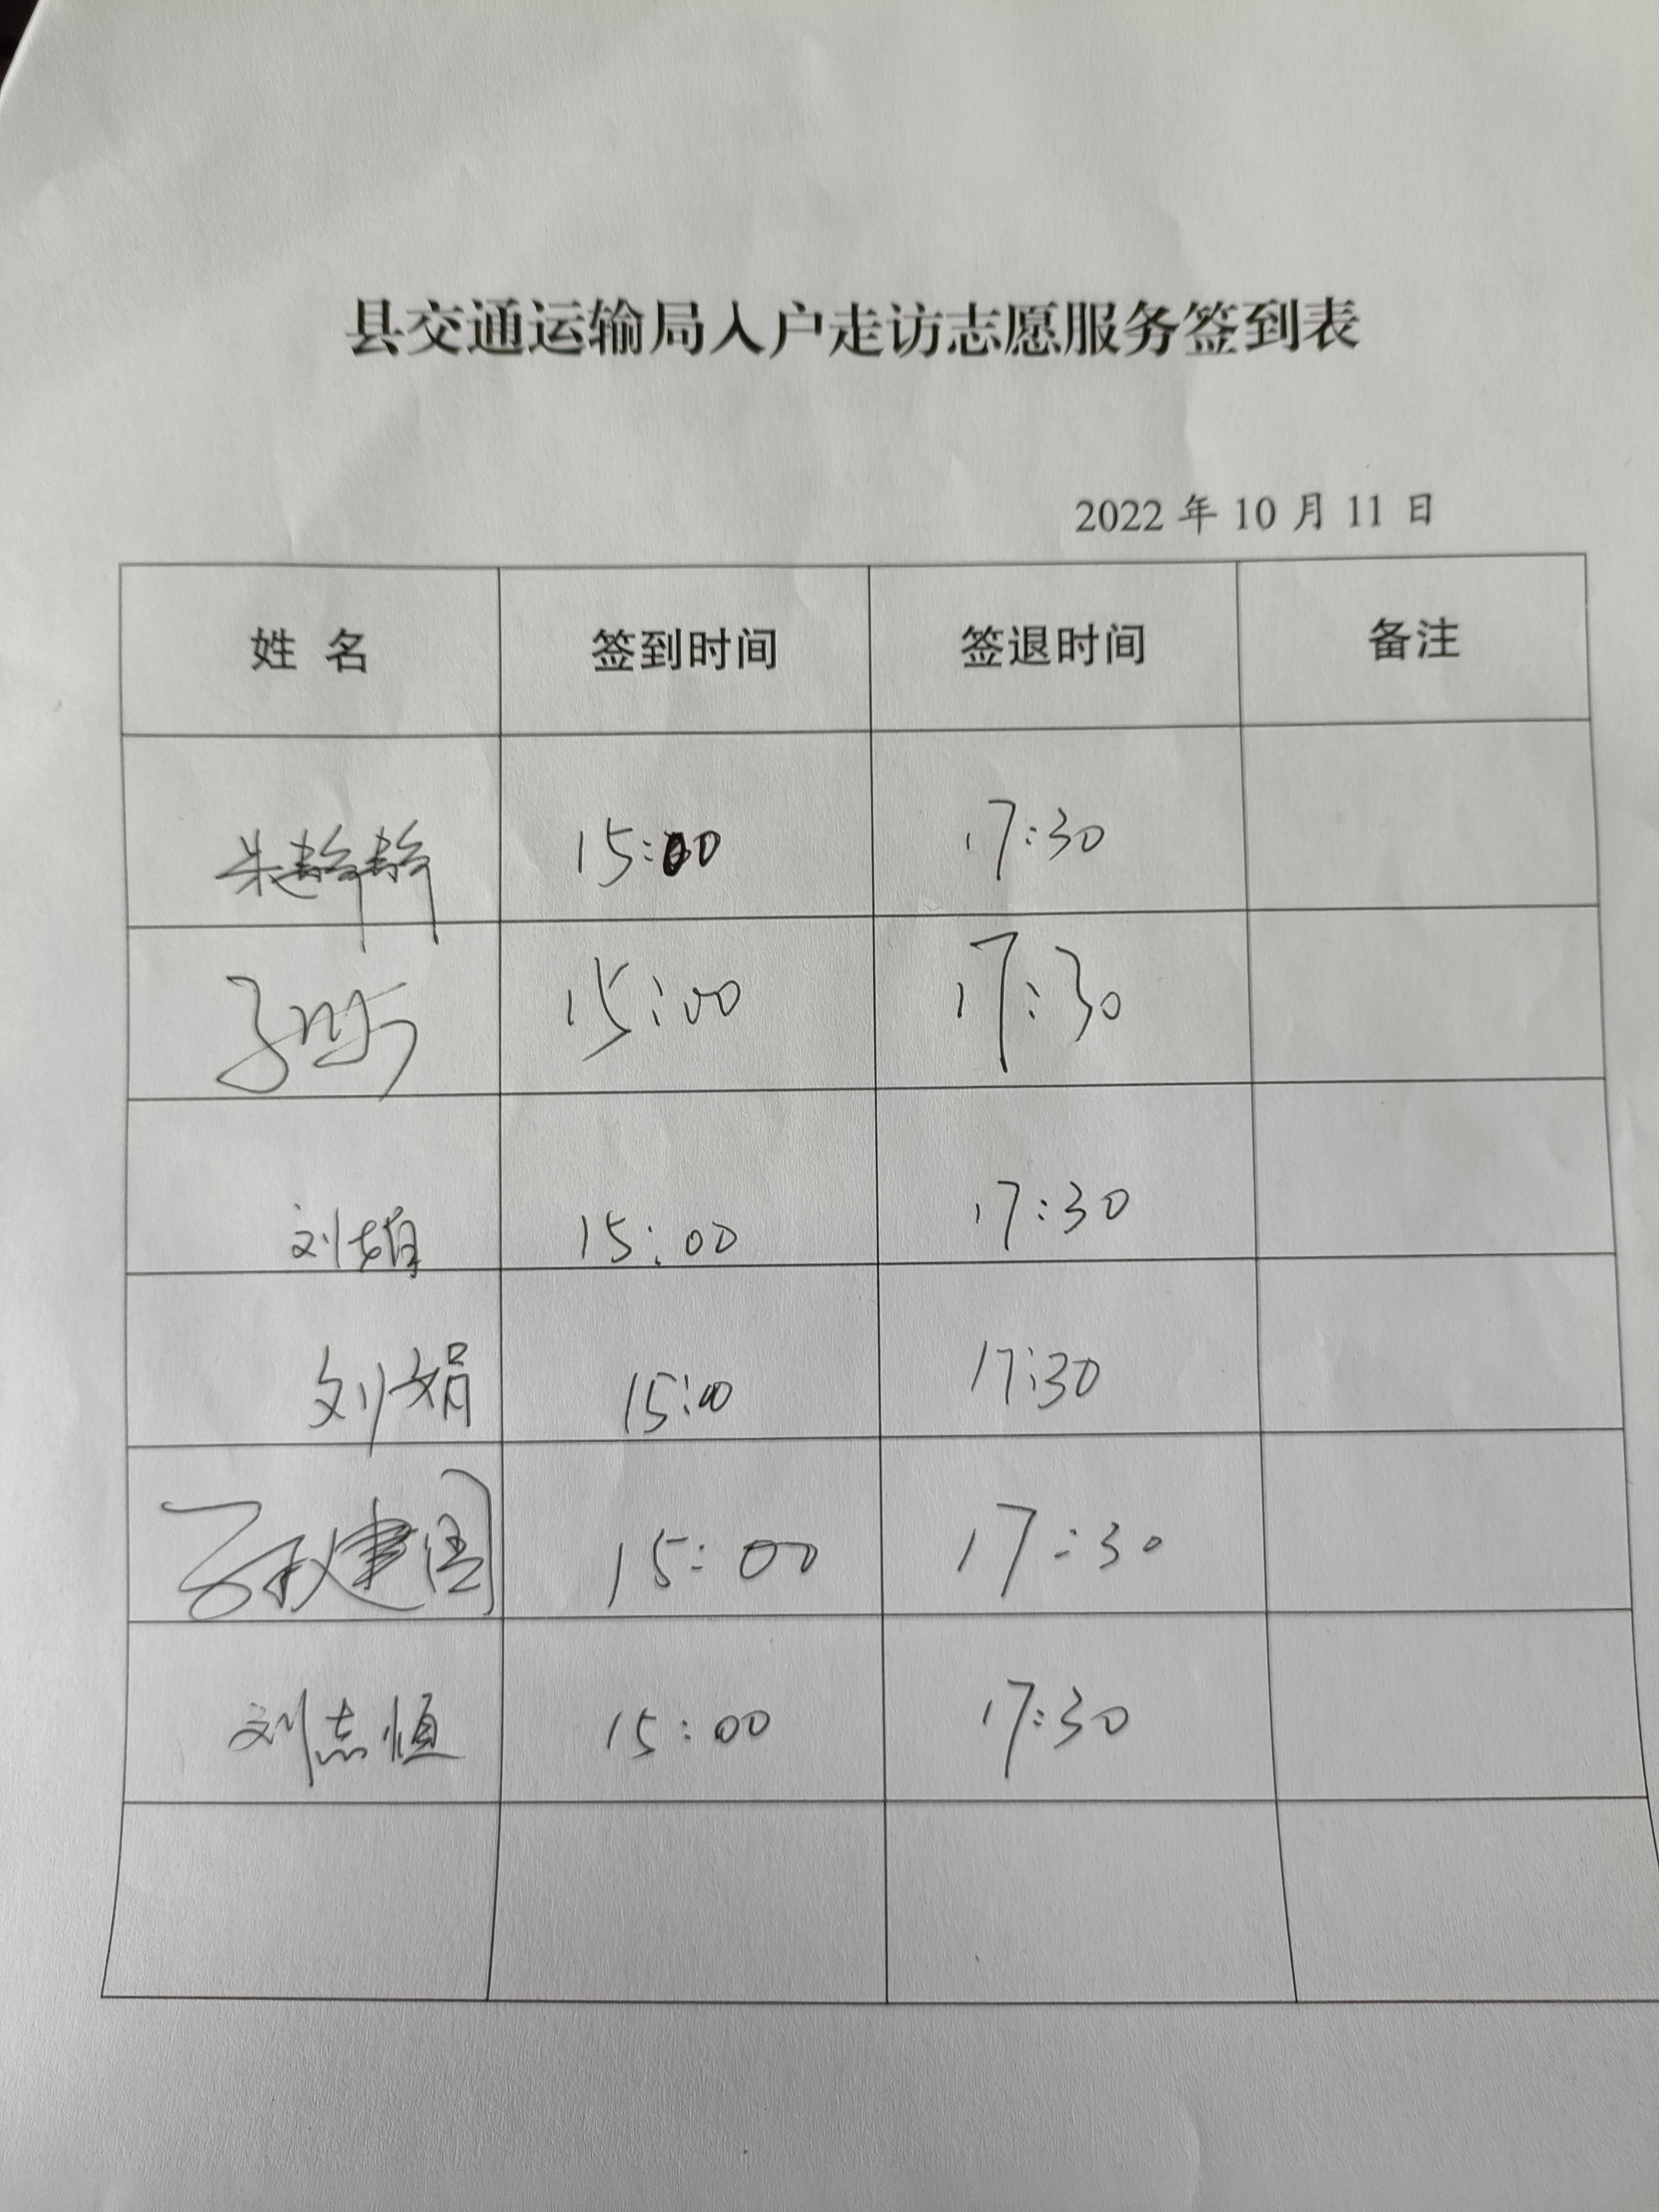 县交通运输局入户走访志愿服务签到表
2022 年 10 月 11 日
姓 名 签到时间 签退时间 备注
朱静静 15:00 17:30
15:00 17:30
刘 15:00 17:30
刘娟 15:00 17:30
建国 15:00 17:30
刘志恒 15:00 17:30